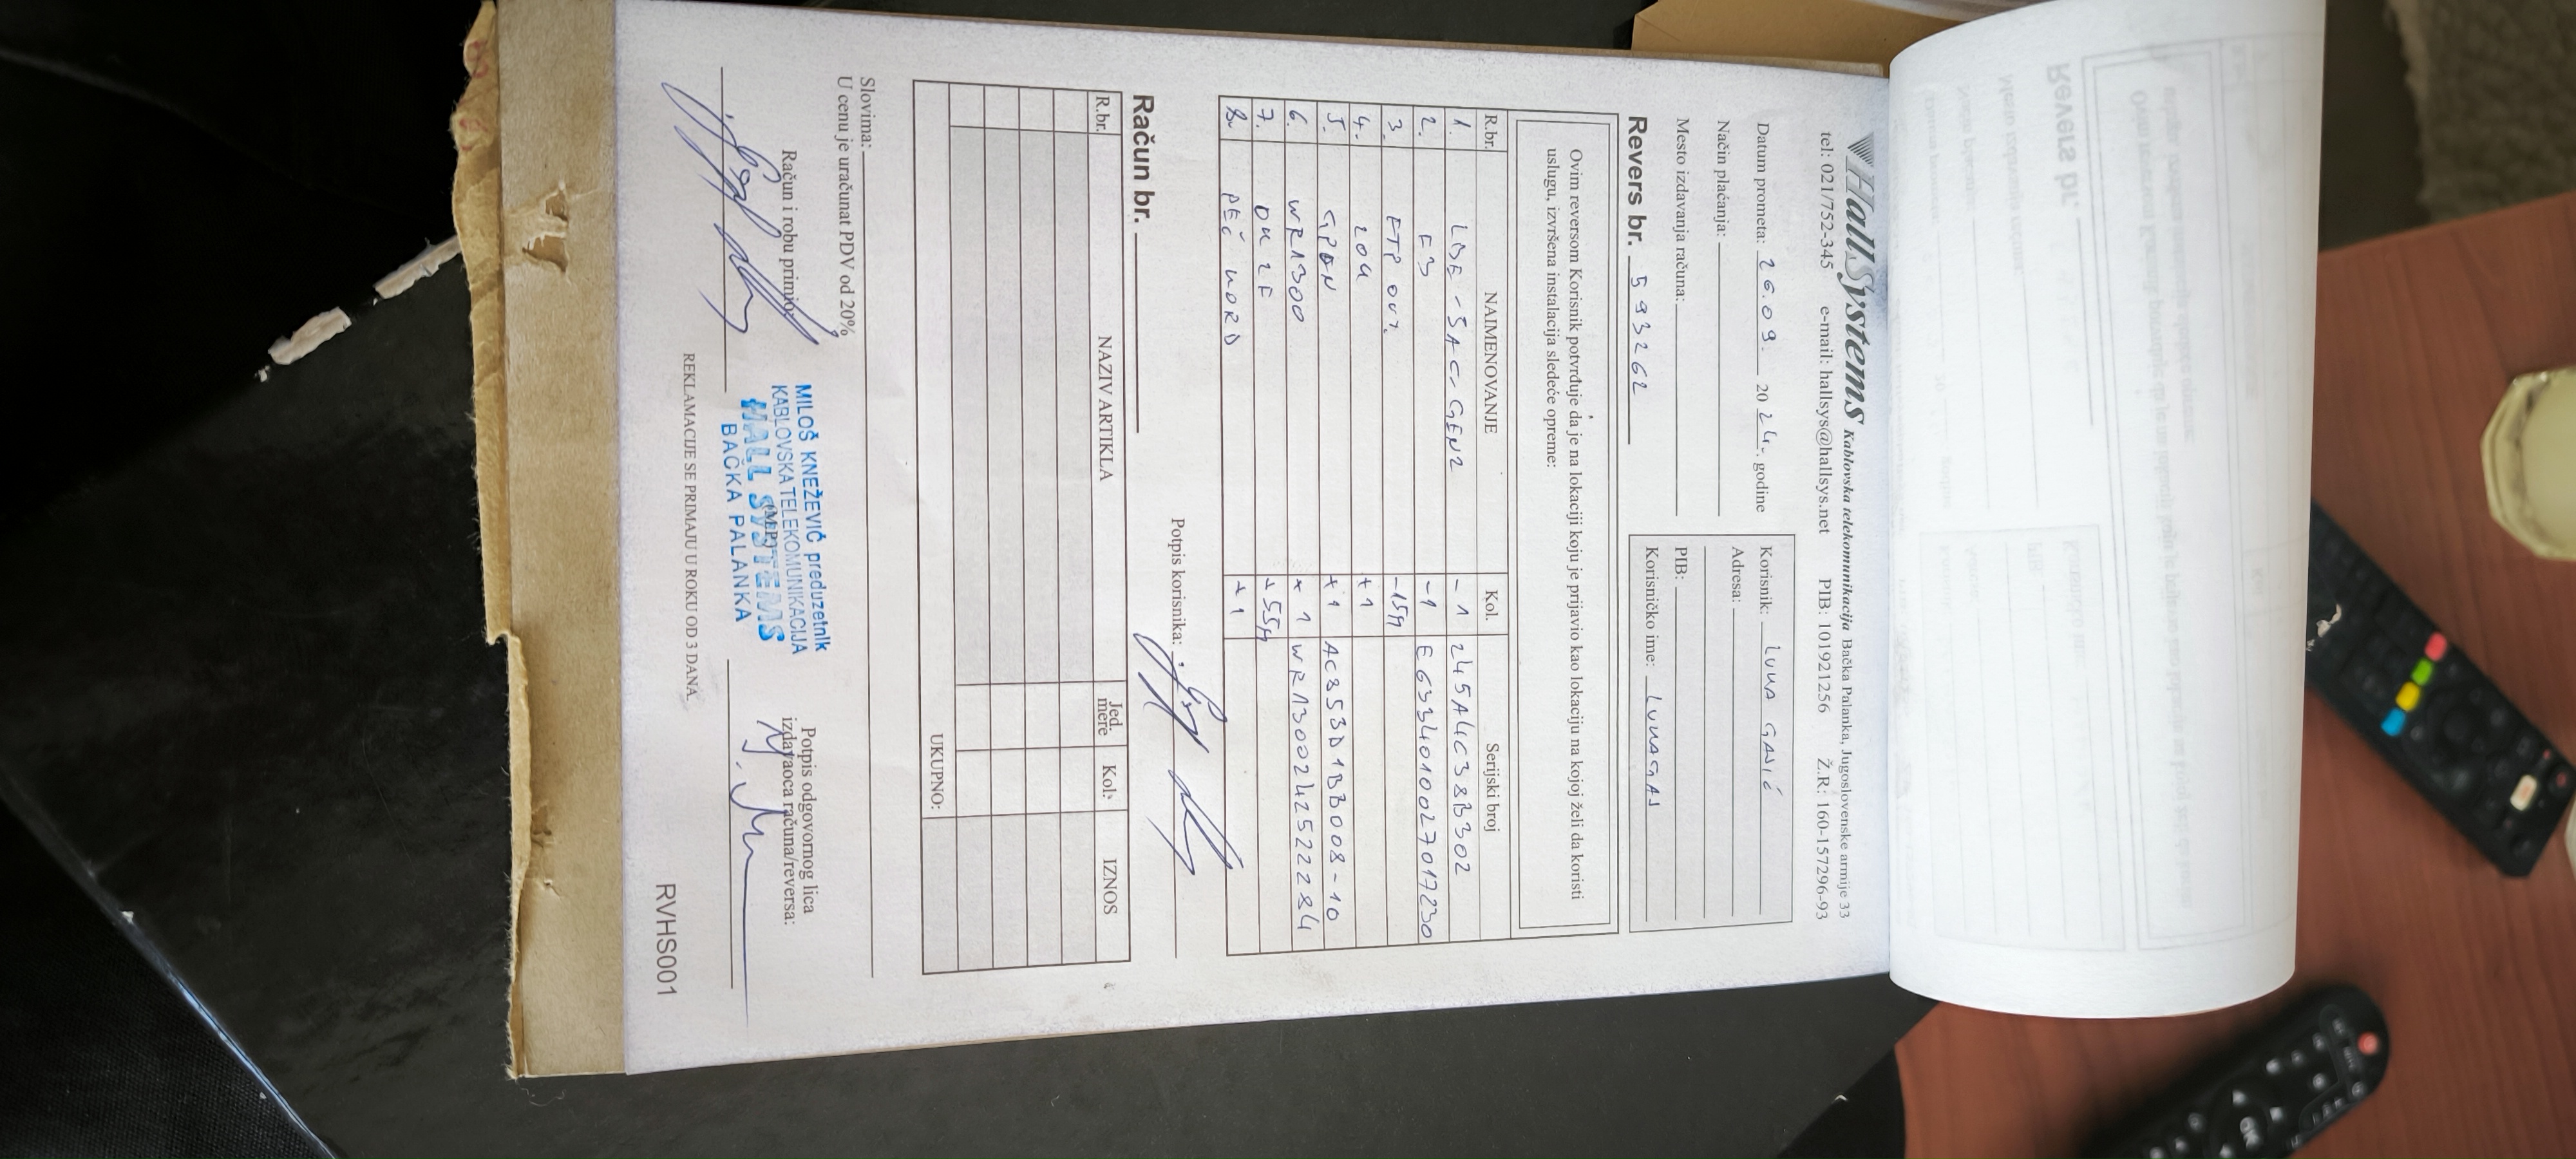 HallSystems Kablovska telekomunikacija Bačka Palanka, Jugoslovenske armije 33
tel: 021/752-345 e-mail: hallsys@hallsys.net PIB: 101921256 Ž.R: 160-157296-93
Datum prometa: 26.09. 2024. godine
Način plaćanja:
Mesto izdavanja računa:
Korisnik: LUKA GAŠIĆ
Adresa:
PIB:
Korisničko ime: LUKAGAS
Revers br. 593262
Ovim reversom Korisnik potvrđuje da je na lokaciji koju je prijavio kao lokaciju na kojoj želi da koristi
uslugu, izvršena instalacija sledeće opreme:
R.br. NAIMENOVANJE Kol. Serijski broj
1. LBE-5AC-GEN2 -1 245A4C38B302
2. F3 -1 E6334010027017230
3. FTP OUT. -15M
4. 20M +1
5. GPON +1 AC853D1BB008-10
6. WR1300 +1 WR13002425222284
7. OK 2F +55M
8. PEČ KORD +1
Potpis korisnika:
Račun br.
R.br. NAZIV ARTIKLA Jed. mere Kol. IZNOS
UKUPNO:
Slovima:
U cenu je uračunat PDV od 20%
Račun i robu primio:
MILOŠ KNEŽEVIĆ preduzetnik
KABLOVSKA TELEKOMUNIKACIJA
HALL SYSTEMS
BAČKA PALANKA
(M.P.)
Potpis odgovornog lica
izdavaoca računa/reversa:
REKLAMACIJE SE PRIMAJU U ROKU OD 3 DANA.
RVHS001